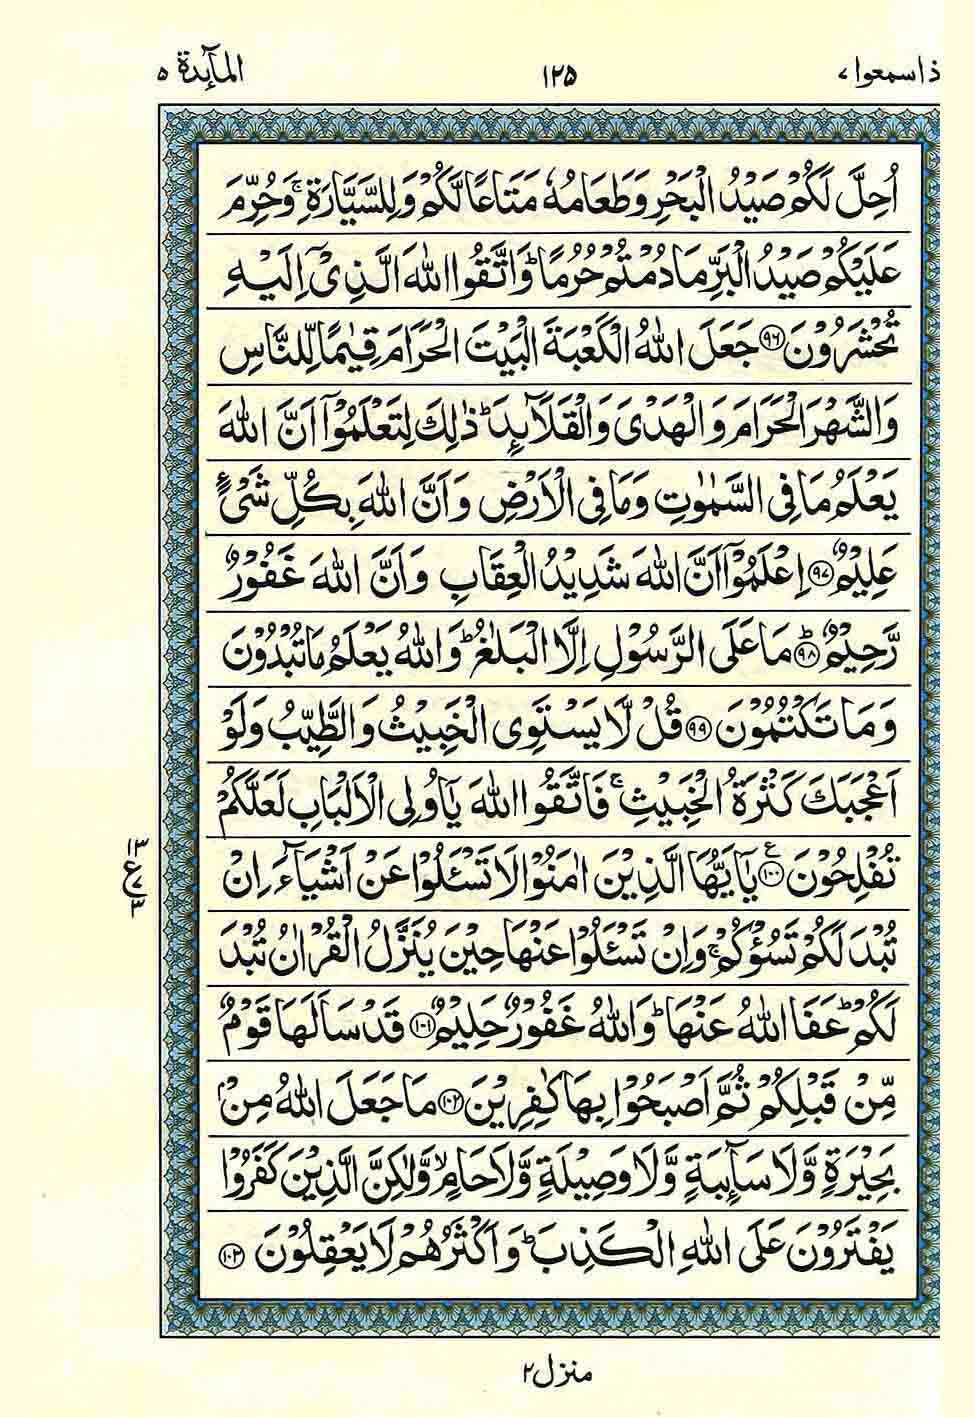 ذاسمعوا ٧
١٢٥
المآىِٕدة ٥
اُحِلَّ لَكُمْ صَيْدُ الْبَحْرِ وَطَعَامُهٗ مَتَاعًا لَّكُمْ وَلِلسَّيَّارَةِ ۚ وَحُرِّمَ
عَلَيْكُمْ صَيْدُ الْبَرِّ مَا دُمْتُمْ حُرُمًا ؕ وَاتَّقُوا اللّٰهَ الَّذِىْۤ اِلَيْهِ
تُحْشَرُوْنَ ﴿۹۶﴾ جَعَلَ اللّٰهُ الْكَعْبَةَ الْبَيْتَ الْحَرَامَ قِيٰمًا لِّلنَّاسِ
وَالشَّهْرَ الْحَرَامَ وَالْهَدْىَ وَالْقَلَآىِٕدَ ؕ ذٰلِكَ لِتَعْلَمُوْۤا اَنَّ اللّٰهَ
يَعْلَمُ مَا فِى السَّمٰوٰتِ وَمَا فِى الْاَرْضِ وَاَنَّ اللّٰهَ بِكُلِّ شَىْءٍ
عَلِيْمٌ ﴿۹۷﴾ اِعْلَمُوْۤا اَنَّ اللّٰهَ شَدِيْدُ الْعِقَابِ وَاَنَّ اللّٰهَ غَفُوْرٌ
رَّحِيْمٌ ﴿۹۸﴾ؕ مَا عَلَى الرَّسُوْلِ اِلَّا الْبَلٰغُ ؕ وَاللّٰهُ يَعْلَمُ مَا تُبْدُوْنَ
وَمَا تَكْتُمُوْنَ ﴿۹۹﴾ قُلْ لَّا يَسْتَوِى الْخَبِيْثُ وَالطَّيِّبُ وَلَوْ
اَعْجَبَكَ كَثْرَةُ الْخَبِيْثِ ۚ فَاتَّقُوا اللّٰهَ يٰۤاُولِى الْاَلْبَابِ لَعَلَّكُمْ
تُفْلِحُوْنَ ﴿۱۰۰﴾ يٰۤاَيُّهَا الَّذِيْنَ اٰمَنُوْا لَا تَسْـَٔلُوْا عَنْ اَشْيَآءَ اِنْ
١٣
ع
٣
تُبْدَ لَكُمْ تَسُؤْكُمْ ۚ وَاِنْ تَسْـَٔلُوْا عَنْهَا حِيْنَ يُنَزَّلُ الْقُرْاٰنُ تُبْدَ
لَكُمْ ؕ عَفَا اللّٰهُ عَنْهَا ؕ وَاللّٰهُ غَفُوْرٌ حَلِيْمٌ ﴿۱۰۱﴾ قَدْ سَاَلَهَا قَوْمٌ
مِّنْ قَبْلِكُمْ ثُمَّ اَصْبَحُوْا بِهَا كٰفِرِيْنَ ﴿۱۰۲﴾ مَا جَعَلَ اللّٰهُ مِنْۢ
بَحِيْرَةٍ وَّلَا سَآىِٕبَةٍ وَّلَا وَصِيْلَةٍ وَّلَا حَامٍ ۙ وَّلٰكِنَّ الَّذِيْنَ كَفَرُوْا
يَفْتَرُوْنَ عَلَى اللّٰهِ الْكَذِبَ ؕ وَاَكْثَرُهُمْ لَا يَعْقِلُوْنَ ﴿۱۰۳﴾
منزل ٢